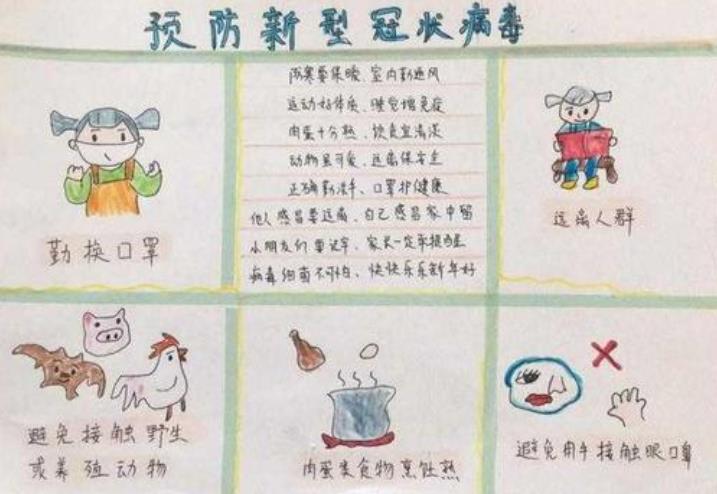 预防新型冠状病毒
勤换口罩
防寒要保暖、室内勤通风
运动好体质、睡觉增免疫
肉蛋十分熟、饮食宜清淡
动物虽可爱、远离保安全
正确勤洗手、口罩护健康
他人感冒要远离、自己感冒家中留
小朋友们要记牢、家长一定来提醒
病毒细菌不可怕、快快乐乐新年好
远离人群
避免接触野生
或养殖动物
肉蛋类食物烹饪熟
避免用手接触眼口鼻